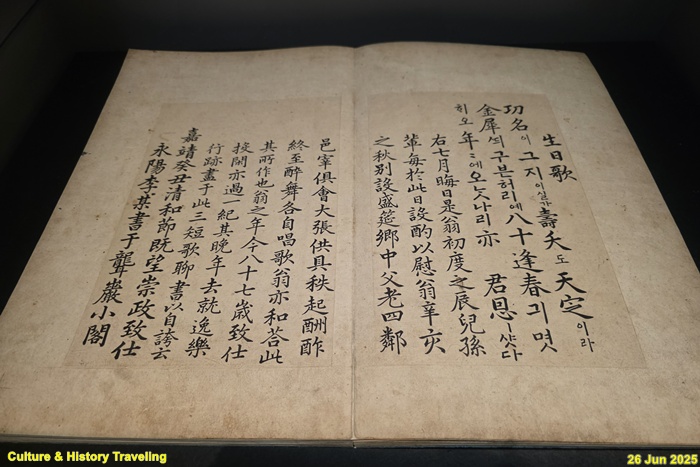 生日歌
功名이 그지이실가 壽夭도 天定이라
金犀띄 구븐허리예 八十逢春 긔 몃
히오 年年에 오ᄂᆞᆺ나리 亦 君恩이샷다
右七月晦日是翁初度之辰兒孫
輩每於此日設酌以慰翁辛亥
之秋別設盛筵鄕中父老四鄰
邑宰俱會大張供具秩起酬酢
終至醉舞各自唱歌翁亦和答此
其所作也翁之年今八十七歲致仕
投閑亦過一紀其晩年去就逸樂
行跡盡于此三短歌聊書以自誇云
嘉靖癸丑淸和節旣望崇政致仕
永陽李某書于聾巖小閣
Culture & History Traveling
26 Jun 2025